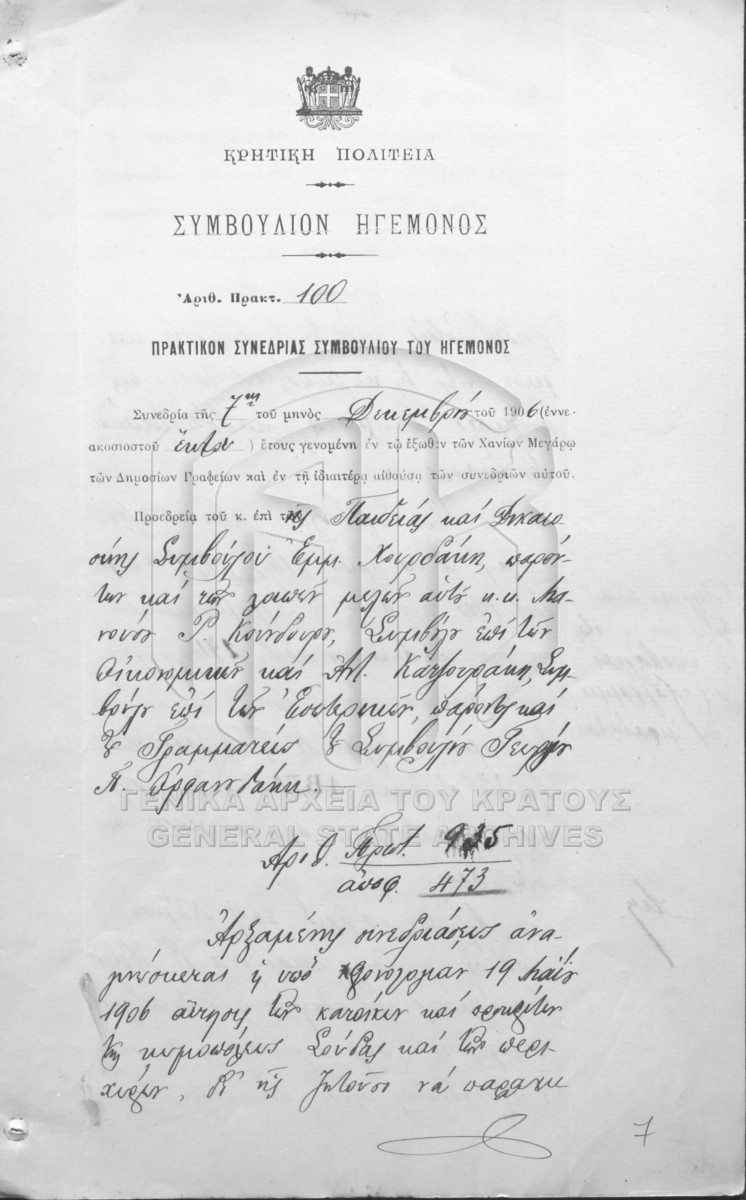 ΚΡΗΤΙΚΗ ΠΟΛΙΤΕΙΑ
ΣΥΜΒΟΥΛΙΟΝ ΗΓΕΜΟΝΟΣ
Ἀριθ. Πρακτ. 100
ΠΡΑΚΤΙΚΟΝ ΣΥΝΕΔΡΙΑΣ ΣΥΜΒΟΥΛΙΟΥ ΤΟΥ ΗΓΕΜΟΝΟΣ
Συνεδρία τῆς 7ης τοῦ μηνὸς Δεκεμβρίου τοῦ 1906 (ἐννε-
ακοσιοστοῦ ἕκτου ) ἔτους γενομένη ἐν τῷ ἔξωθεν τῶν Χανίων Μεγάρῳ
τῶν Δημοσίων Γραφείων καὶ ἐν τῇ ἰδιαιτέρᾳ αἰθούσῃ τῶν συνεδριῶν αὐτοῦ.
Προεδρείᾳ τοῦ κ. ἐπὶ τῆς Παιδείας καὶ Δικαιο
σύνης Συμβούλου Ἐμμ. Χουρδάκη, παρόν
των καὶ τῶν λοιπῶν μελῶν αὐτοῦ κ.κ. Μα
νούσου Ρ. Κούνδουρου, Συμβούλου ἐπὶ τῶν
Οἰκονομικῶν καὶ Ἀντ. Κατζουράκη, Συμ
βούλου ἐπὶ τῶν Ἐσωτερικῶν, παρόντος καὶ
τοῦ Γραμματέως τοῦ Συμβουλίου Γεωργίου
Π. Ὀρφανουδάκη.
ΓΕΝΙΚΑ ΑΡΧΕΙΑ ΤΟΥ ΚΡΑΤΟΥΣ
GENERAL STATE ARCHIVES
Ἀριθ. Πρωτ. 935
ἀποφ. 473
Ἀρξαμένης συνεδριάσεως ἀνα
γινώσκεται ἡ ὑπὸ χρονολογίαν 19 Μαΐου
1906 αἴτησις τῶν κατοίκων καὶ προκρίτων
τῆς κωμοπόλεως Σούδας καὶ τῶν περι
χώρων, δι' ἧς ζητοῦσι νά
7